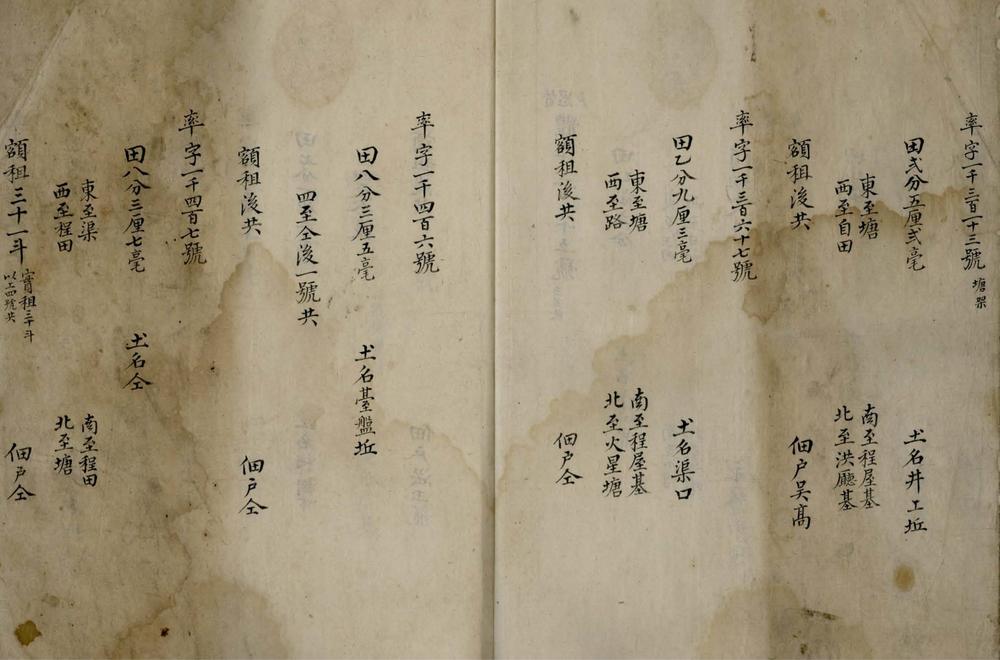 率字一千三百一十三號 塘界
田弍分五厘弍毫 土名井工坵
東至塘 南至程屋基
西至自田 北至洪廳基
額租後共 佃戶吳高
率字一千三百六十七號
田乙分九厘三毫 土名渠口
東至塘 南至程屋基
西至路 北至火星塘
額租後共 佃戶仝
率字一千四百六號
田八分三厘五毫 土名臺盤坵
四至仝後一號共
額租後共 佃戶仝
率字一千四百七號
田八分三厘七毫 土名仝
東至渠 南至程田
西至程田 北至塘
額租三十一斗 實租三十斗 以上四號共 佃戶仝